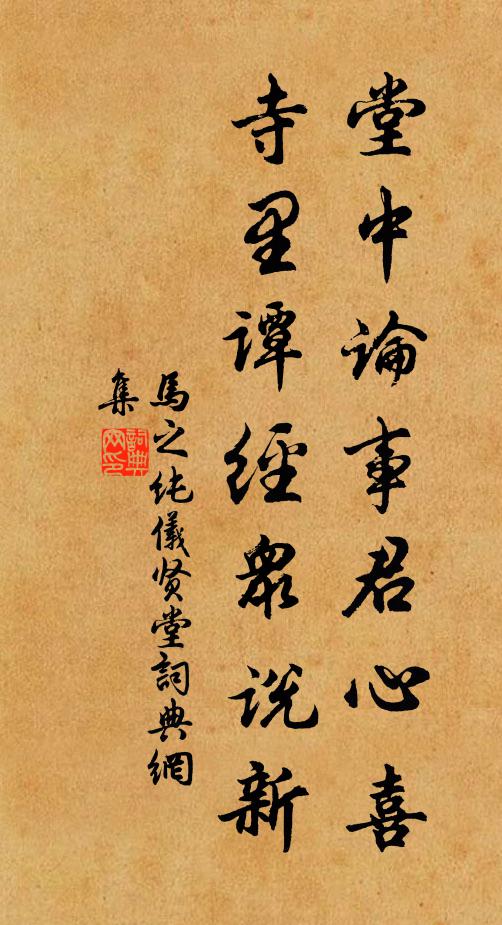 堂中論事君心喜
寺里譚經衆説新
馬之純儀贤堂詞典網
集
詞典
网印